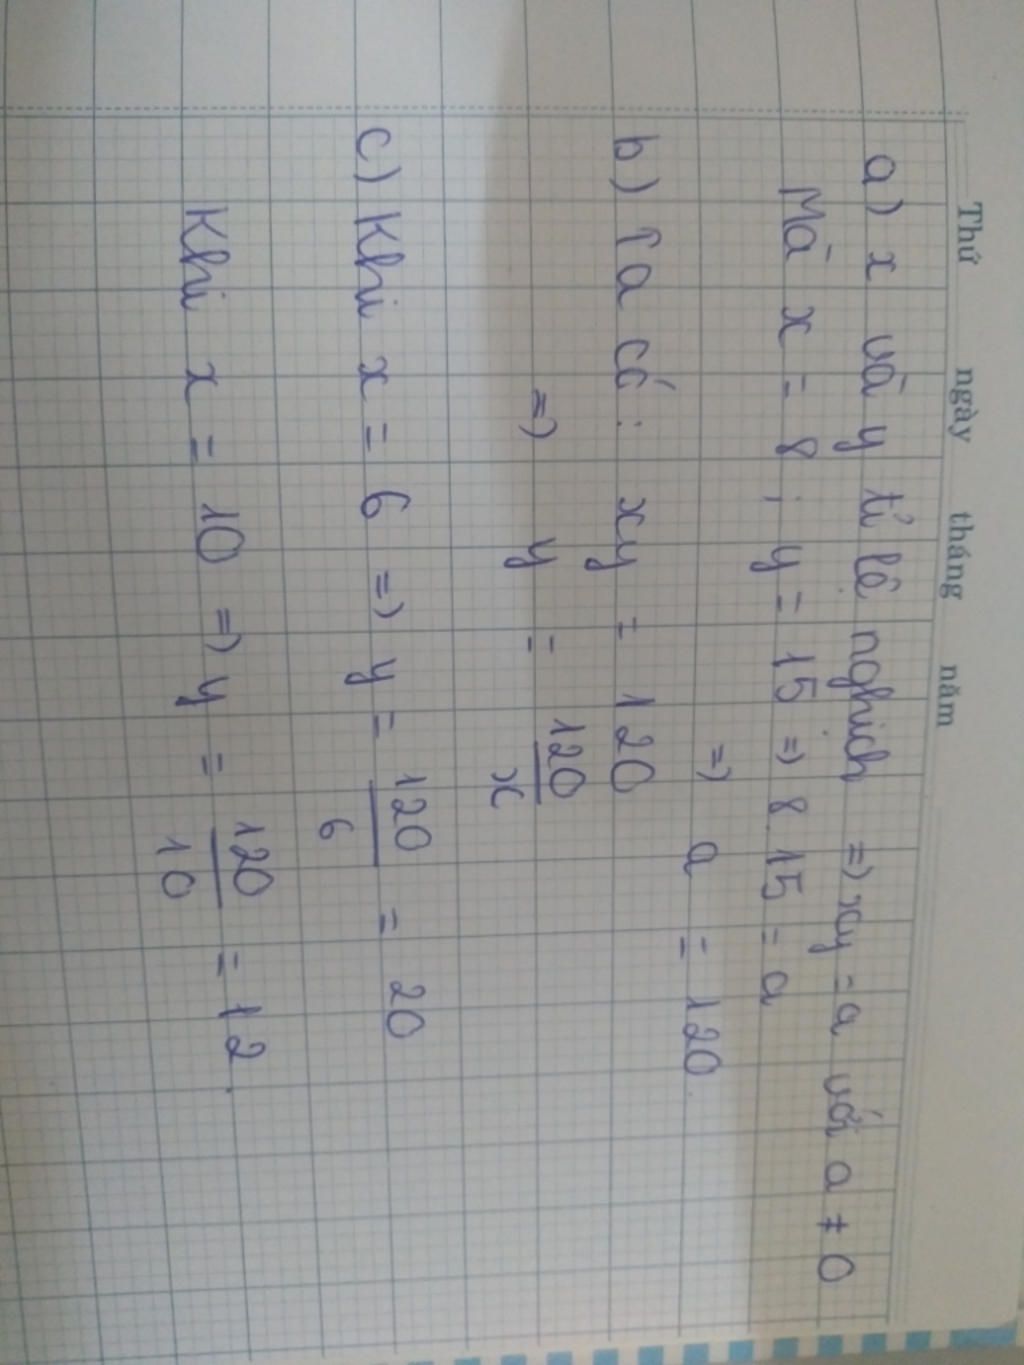 Thứ ngày tháng năm
a) x và y tỉ lệ nghịch => xy = a với a ≠ 0
Mà x = 8 ; y = 15 => 8.15 = a
=> a = 120
b) Ta có : xy = 120
=> y = 120/x
c) Khi x = 6 => y = 120/6 = 20
Khi x = 10 => y = 120/10 = 12.